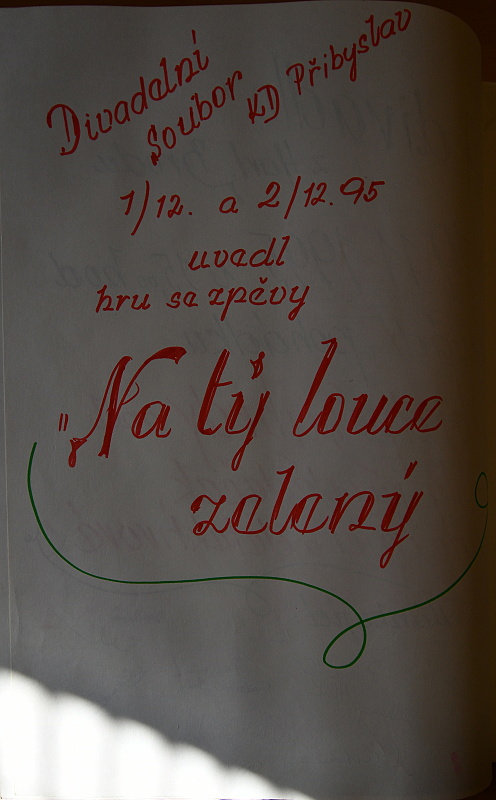 Divadelní
Soubor KD Přibyslav
1/12. a 2/12.95
uvedl
hru se zpěvy
"Na tý louce
zelený